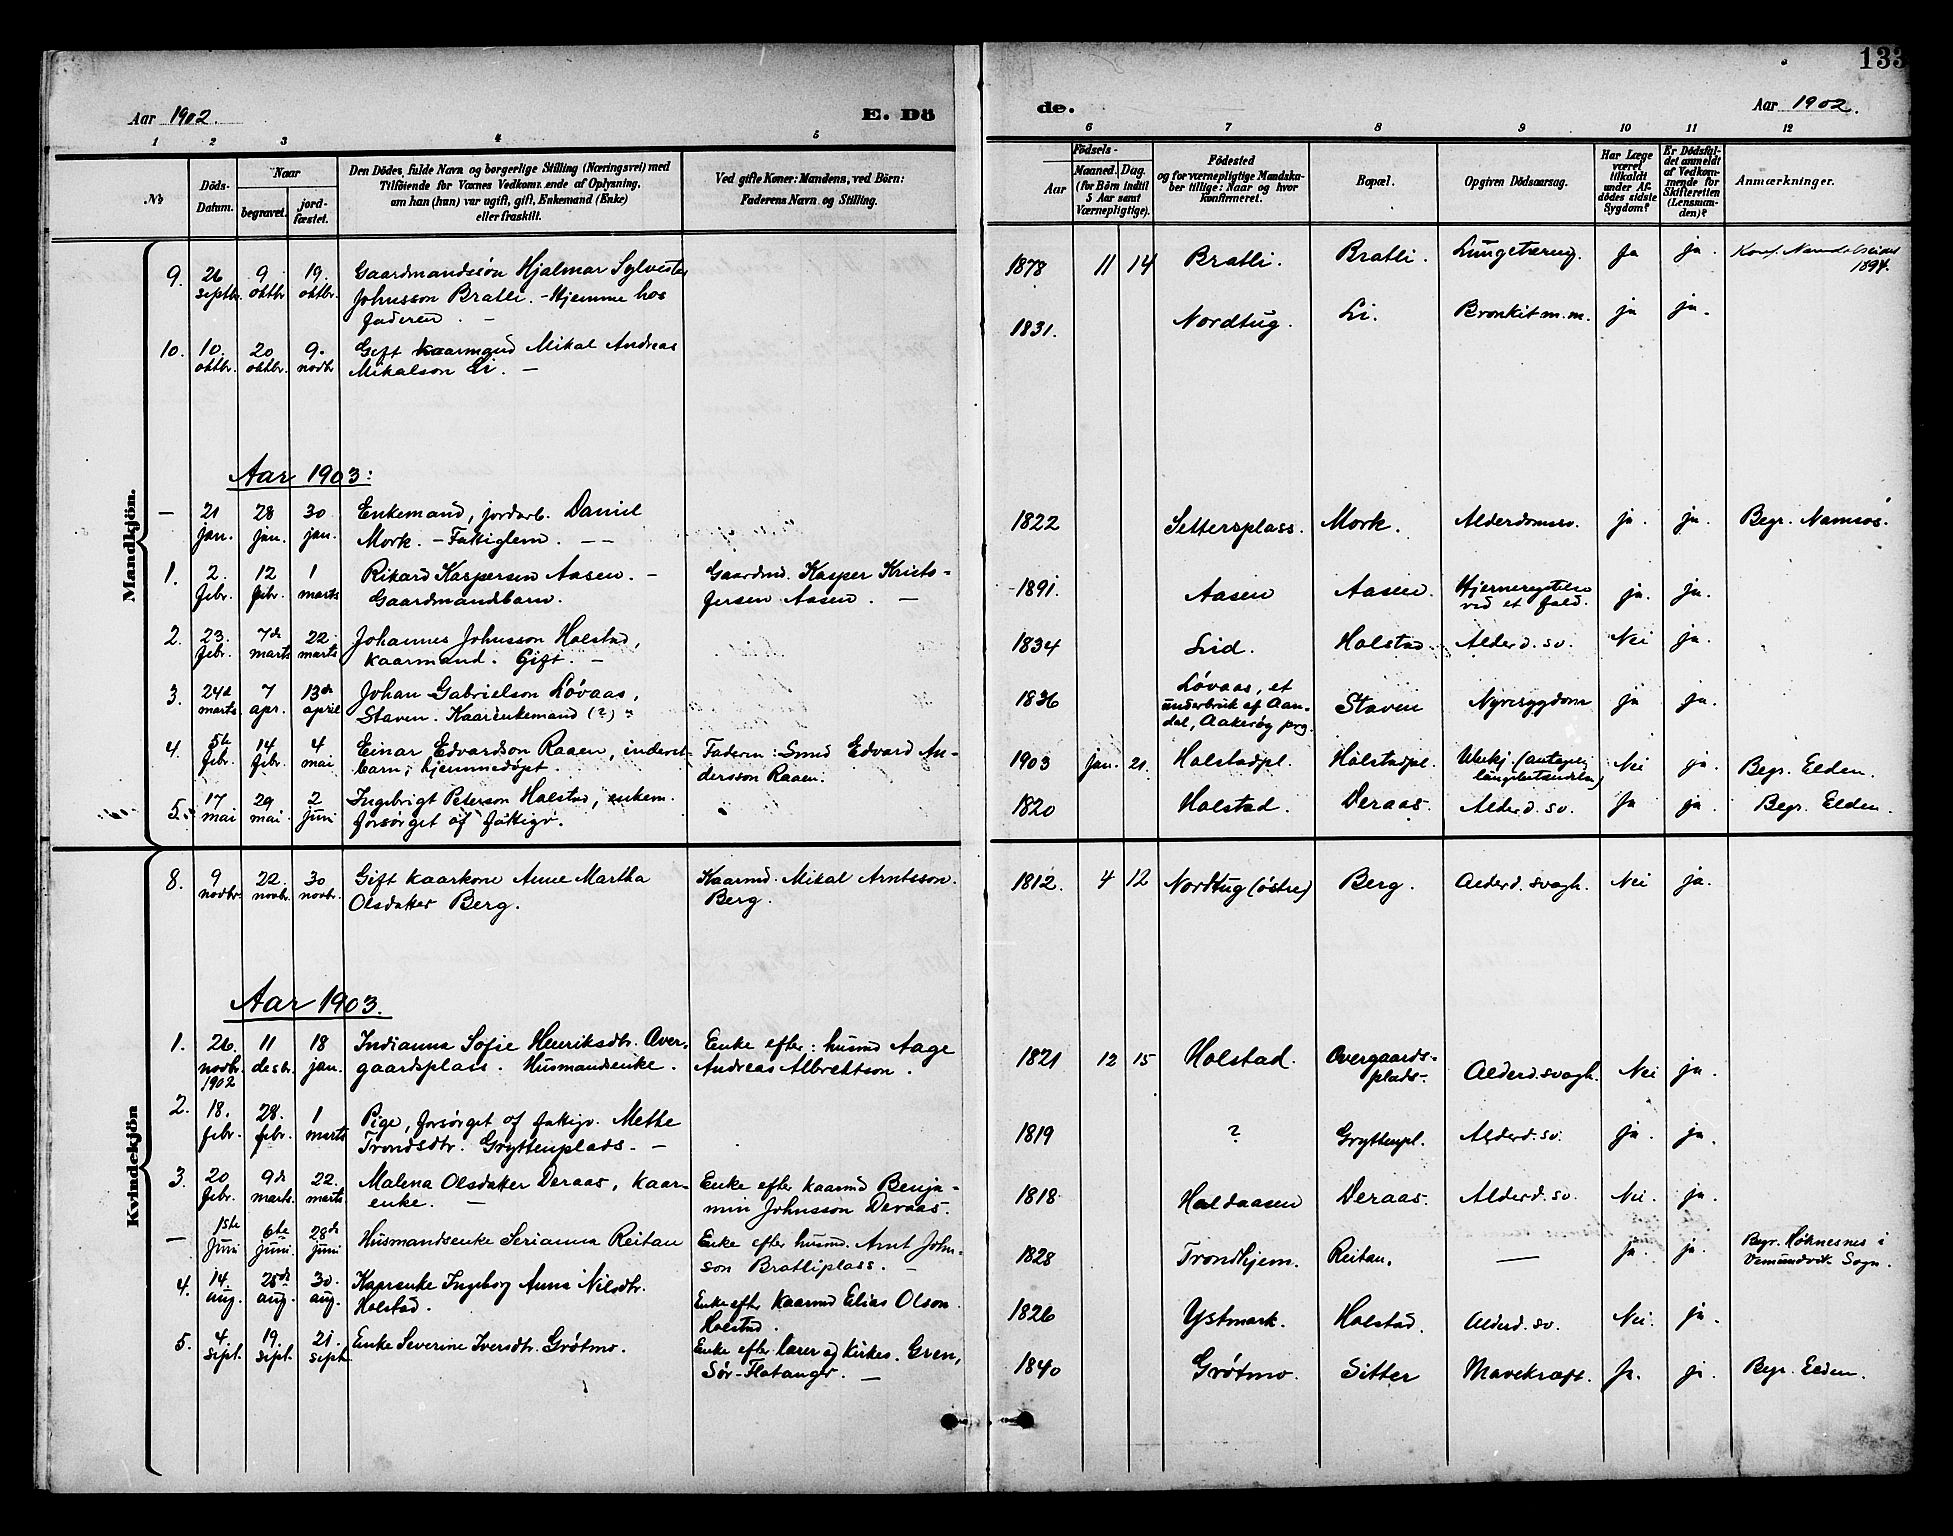 133
Aar 1902.
E. Dö
de.
Aar 1902.
1 2 3 4 5 6 7 8 9 10 11 12
No
Döds-
Datum.
Naar
begravet.
jord-
fæstet.
Den Dödes fulde Navn og borgerlige Stilling (Næringsvei) med
Tilföiende for Voxnes Vedkommende af Oplysning,
om han (hun) var ugift, gift, Enkemand (Enke)
eller fraskilt.
Ved gifte Koner: Mandens, ved Börn:
Faderens Navn og Stilling.
Födsels-
Aar
Maaned. Dag.
(for Börn indtil
5 Aar samt
Værnepligtige).
Födested
og for værnepligtige Mandska-
ber tillige: Naar og hvor
konfirmeret.
Bopæl.
Opgiven Dödsaarsag.
Har Læge
været
tilkaldt
under Af-
dödes sidste
Sygdom?
Er Dödsfal-
det anmeldt
af Vedkom-
mende for
Skifteretten
(Lensman-
den)?
Anmærkninger.
Mandkjön.
9. 26 septbr. 9 oktbr 19. oktbr. Gaardmandssøn Hjalmar Sylvester
Johnsson Bratli. - Hjemme hos
faderen. -
1878 11 14 Bratli. Bratli. Lungetæring. Ja ja. Konf. Namdalseidet
1894.
10. 10. oktbr. 20 oktbr. 9. novbr Gift kaarmand Mikal Andreas
Mikalson Li. -
1831. Nordtug. Li. Bronkit m.m. ja ja.
Aar 1903:
- 21 jan. 28 jan. 30 jan. Enkemand, jordarb. Daniel
Mork. - Fattiglem. - -
1822 Settersplass. Mork. Alderdomssv. ja. ja. Begr. Namsos.
1. 2. febr. 12 febr. 1 marts Rikard Kaspersen Aasen. -
Gaardmandsbarn.
Gaardmd. Kasper Krists-
fersen Aasen. -
1891. Aasen Aasen. Hjernerystelse
ved et fald. ja. ja.
2. 23. febr. 7de marts 22 marts Johannes Johnsson Holstad,
kaarmand. Gift. -
1834 Lid. Holstad Alderd. sv. Nei ja.
3. 24d marts 7 apr. 13de april Johan Gabrielson Løvaas,
Staven. Kaarenkemand (?)
1836 Løvaas, et
underbruk af Aan-
dal, Aakerøy prg. Staven Nyresygdom ja ja.
4. 5te febr. 14 febr. 4 mai Einar Edvardson Raaen, inderst-
barn, hjemmedøpt.
Faderen: Smed Edvard An-
dersson Raaen.
1903 Jan. 21. Holstadpl. Holstadpl. Ubekj. (antagel.
lungebetændelse) Nei ja. Begr. Elden.
5. 17 mai 29 mai 2 juni Ingebrigt Peterson Holstad, enkem.
forsørget af fattigv.
1820 Holstad. Deraas. Alderd. sv. Ja ja. Begr. Elden.
Kvindekjön
8. 9 novbr. 22. novbr. 30 novbr. Gift kaarkone Anne Martha
Olsdatter Berg.
Kaarmd. Mikal Arntsson.
Berg.
1812. 4 12 Nordtug (østre) Berg. Alderd. svagh. Nei ja.
Aar 1903.
1. 26. novbr. 1902 11 desbr. 18 jan. Indianna Sofie Henriksdtr. Over-
gaardsplass. Husmandsenke.
Enke efter: husmd Aage
Andreas Albrektson.
1821 12 15 Holstad. Overgaards-
plads-. Alderd. svagh. Nei ja.
2. 18. febr. 28. febr. 1 marts Pige, forsørget af fattigv. Methe
Trondsdtr. Gryttenplads. -
1819 ? Gryttenpl. Alderd. sv. ja. ja.
3. 20 febr. 9de marts. 22. marts Malena Olsdatter Deraas, kaar-
enke. -
Enke efter kaarmd Benja-
min Johnsson Deraas.
1818 Haldaasen Deraas. Alderd. sv. Nei. ja.
- 1ste juni 6te juni 28de juni Husmandsenke Serianna Reitan
Enke efter husmd. Arnt John-
son Bratliplass. -
1828 Trondhjem. Reitan. - ja. ja. Begr. Høknesnes i
Vemundvik Sogn.
4. 14. aug. 25de aug. 30. aug. Kaarenke Ingeborg Anna Nilsdtr.
Holstad.
Enke efter Kaarmd Elias Olson.
Holstad.
1826 Ystmark. Holstad. Alderd. sv. Nei. ja.
5. 4. sept. 19. sept. 21. sept Enke Severine Iversdtr. Grøtmo.
Enke efter lærer og kirkes. Gren,
Sør-Flatanger. -
1840 Grøtmo. Sitter Mavekræft. Ja. ja. Begr. Elden.